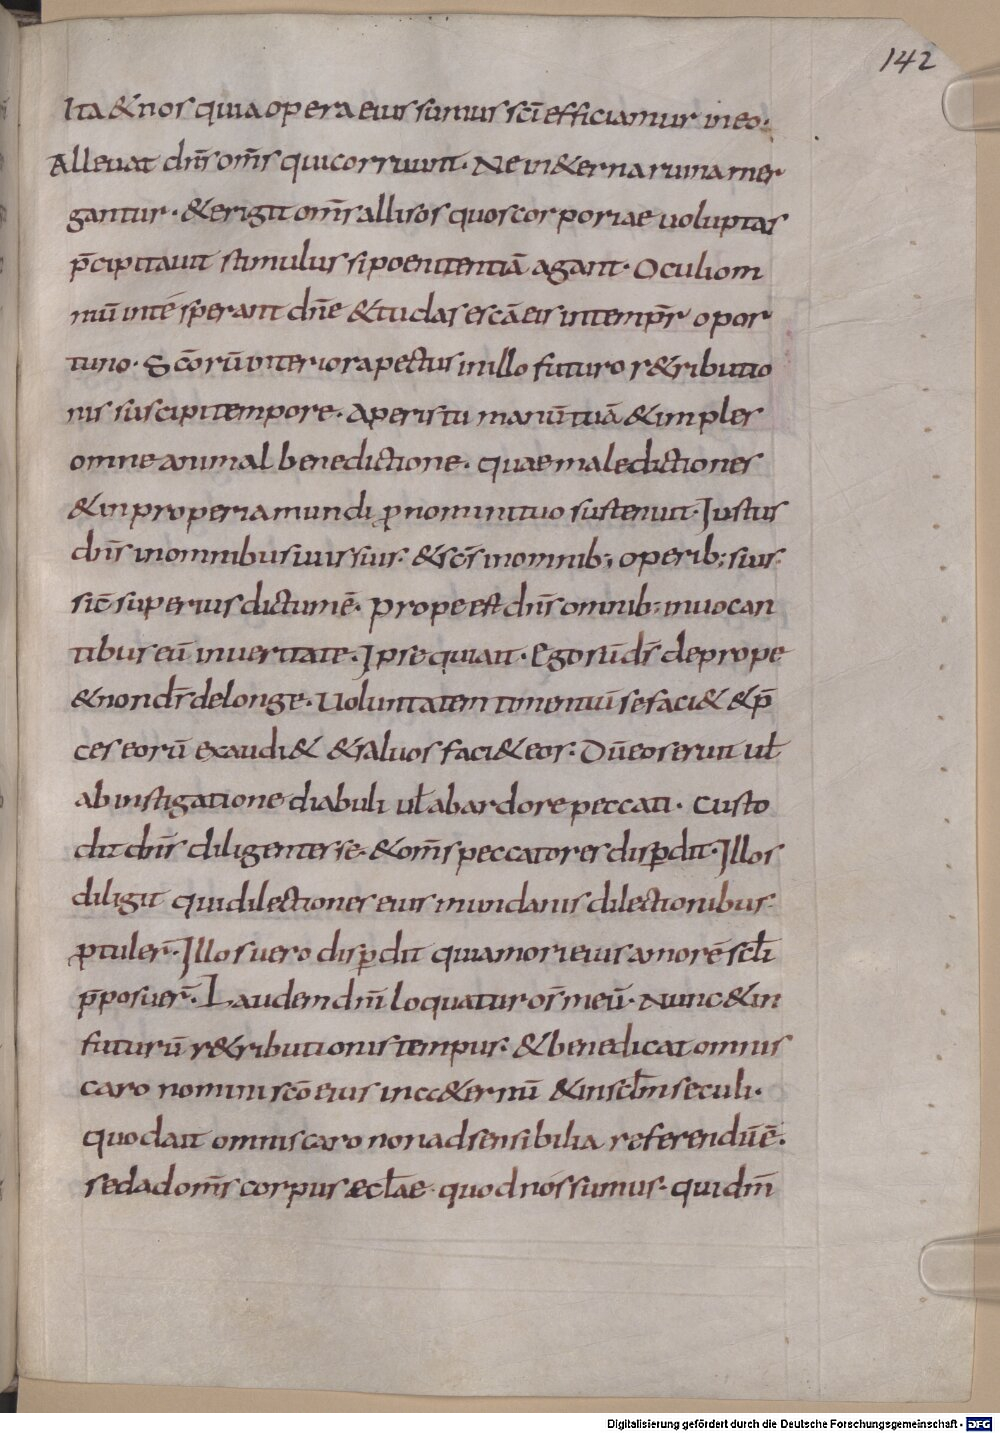 142
Ita & nos quia opera eius sumus sc̄i efficiamur in eo.
Alleuat dn̄s om̄s qui corruunt. Ne in &erna ruina mer
gantur. & erigit om̄s allisos quos corporiae uoluptas
p̄cipitauit stimulus si poenitentiā agant. Oculi om
niū in te sperant dn̄e & tu das escā eis in temp̄r opor
tuno. Sc̄orū interiora pectus in illo futuro r&ributio
nis suscipi tempore. Aperis tu manū tuā & imples
omne animal benedictione. quae maledictiones
& inproperia mundi ꝓ nomini tuo sustenuit. Justus
dn̄s in omnibus uiis suis. & sc̄s in omnib; operib; suis.
sic̄ superius dictum ē. Prope est dn̄s omnib; inuocan
tibus eū in ueritate. Ipse quia it. Ego sū dr̄ de prope
& non dr̄ de longe. Uoluntatem timentiū se faci& & p̄
ces eorū exaudi& & saluos faci& eos. Dū eos eruit ul̄
ab instigatione diabuli ul̄ ab ardore peccati. Custo
dit dn̄s diligentes se. & om̄s peccatores disꝑdit. Illos
diligit qui dilectiones eius mundanis dilectionibus
ꝓtuler̄. Illos uero disꝑdit qui amori eius amorē scl̄i
p̄posuer̄. Laudem dn̄i loquatur os meū. Nunc & in
futurū r&ributionis tempus. & benedicat omnis
caro nomini sc̄o eius in &ernū & in scl̄m seculi.
quod ait omnis caro non ad sensibilia referendū ē.
sed ad om̄s corpus eccl̄ae quod nos sumus. qui dn̄i
Digitalisierung gefördert durch die Deutsche Forschungsgemeinschaft - DFG